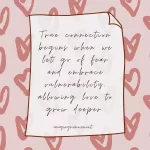 True connection
begins when we
let go of fear
and embrace
vulnerability
allowing love to
grow deeper